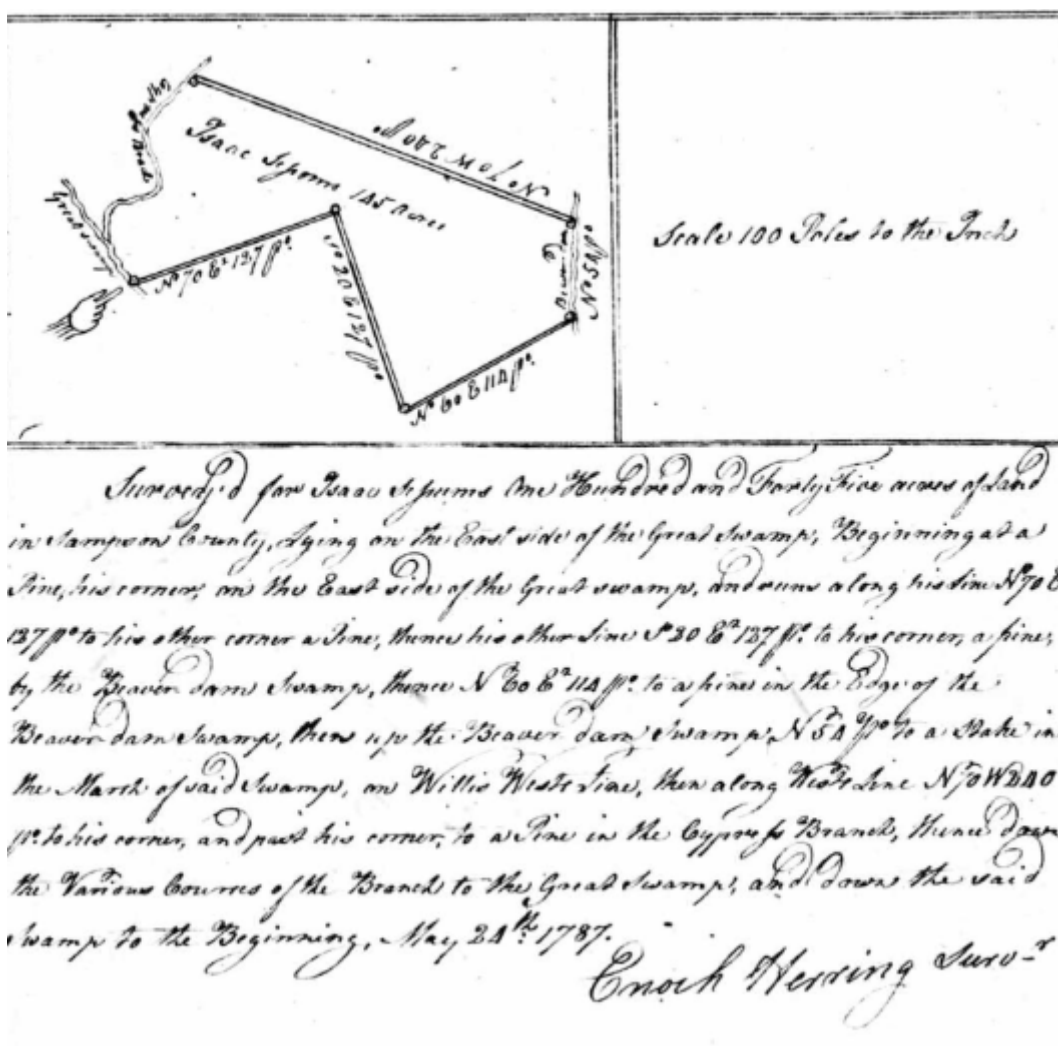 Cyprus Branch
Great swamp
Isaac Sessoms 145 acres
No 70 W 240 po
Beaver dam
No 54 po
No 70 Et 127 po.
So 20 E 127 po
No 60 E 114 po.
Scale 100 Poles to the Inch
Survey'd for Isaac Sessums One Hundred and Forty Five acres of Land
in Sampson County, Lying on the East side of the Great Swamp, Beginning at a
Pine, his corner, on the East side of the Great swamp, and runs along his line No 70 E
127 po to his other corner a Pine, thence his other Line So 20 Et 127 po. to his corner, a pine,
by the Beaver dam Swamp, thence No 60 Et 114 po. to a pine in the Edge of the
Beaver dam Swamp, then up the Beaver dam Swamp No 54 po to a Stake in
the March of said Swamp, on Willis Wests Line, then along Wests Line No 70 W 240
po. to his corner, and past his corner, to a Pine in the Cypress Branch, thence down
the Various Courses of the Branch to the Great Swamp, and down the said
Swamp to the Beginning, May 24th. 1787.
Enoch Herring Survr